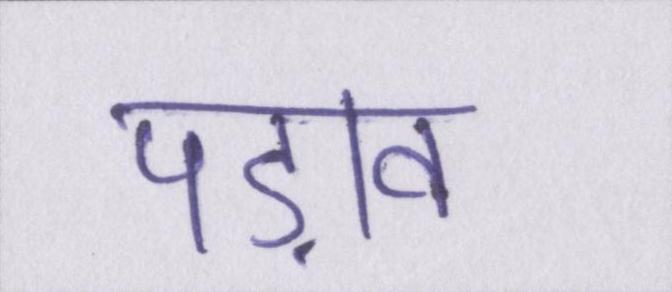 पड़ाव